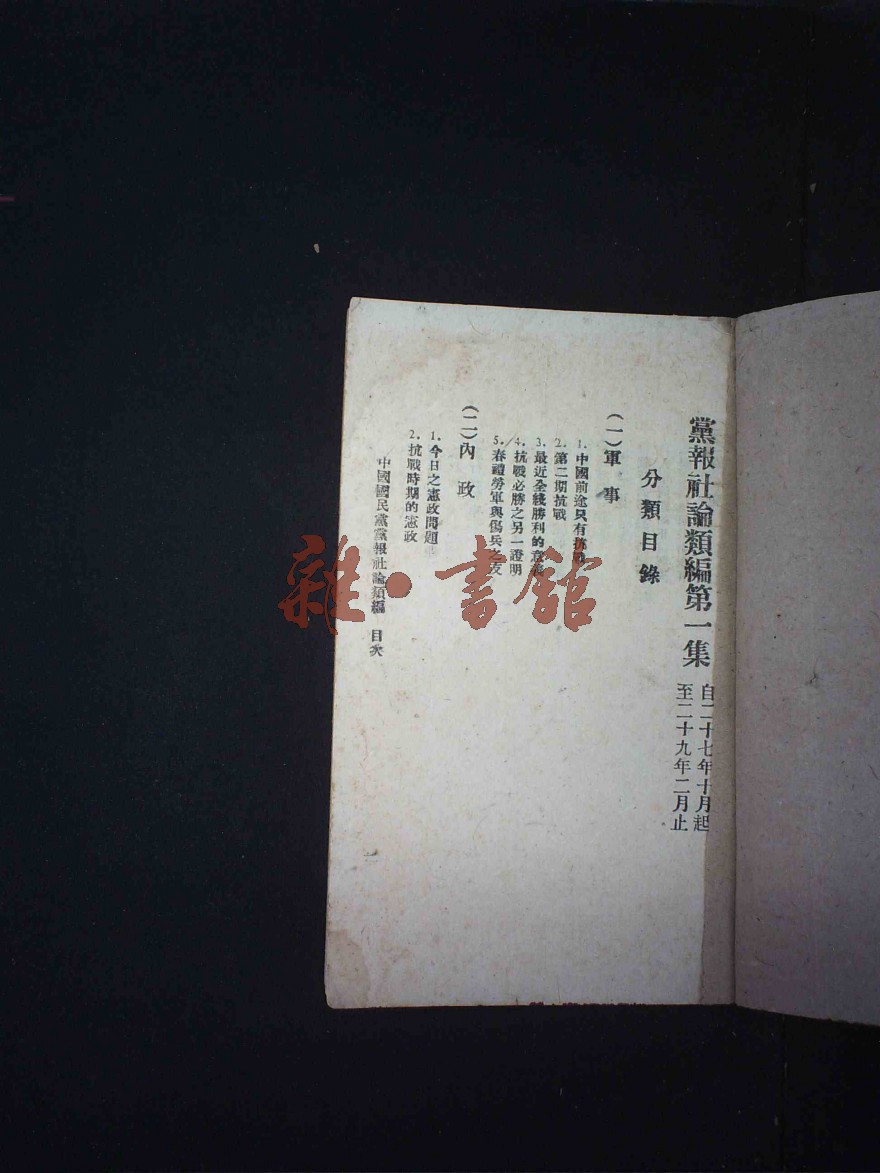 黨報社論類編第一集
自二十七年十月起
至二十九年二月止
分類目錄
(一)軍事
1.中國前途只有抗戰
2.第二期抗戰
3.最近全綫勝利的意義
4.抗戰必勝之另一證明
5.春禮勞軍與傷兵之友
(二)內政
1.今日之憲政問題
2.抗戰時期的憲政
中國國民黨黨報社論類編 目次
一
雜·書館